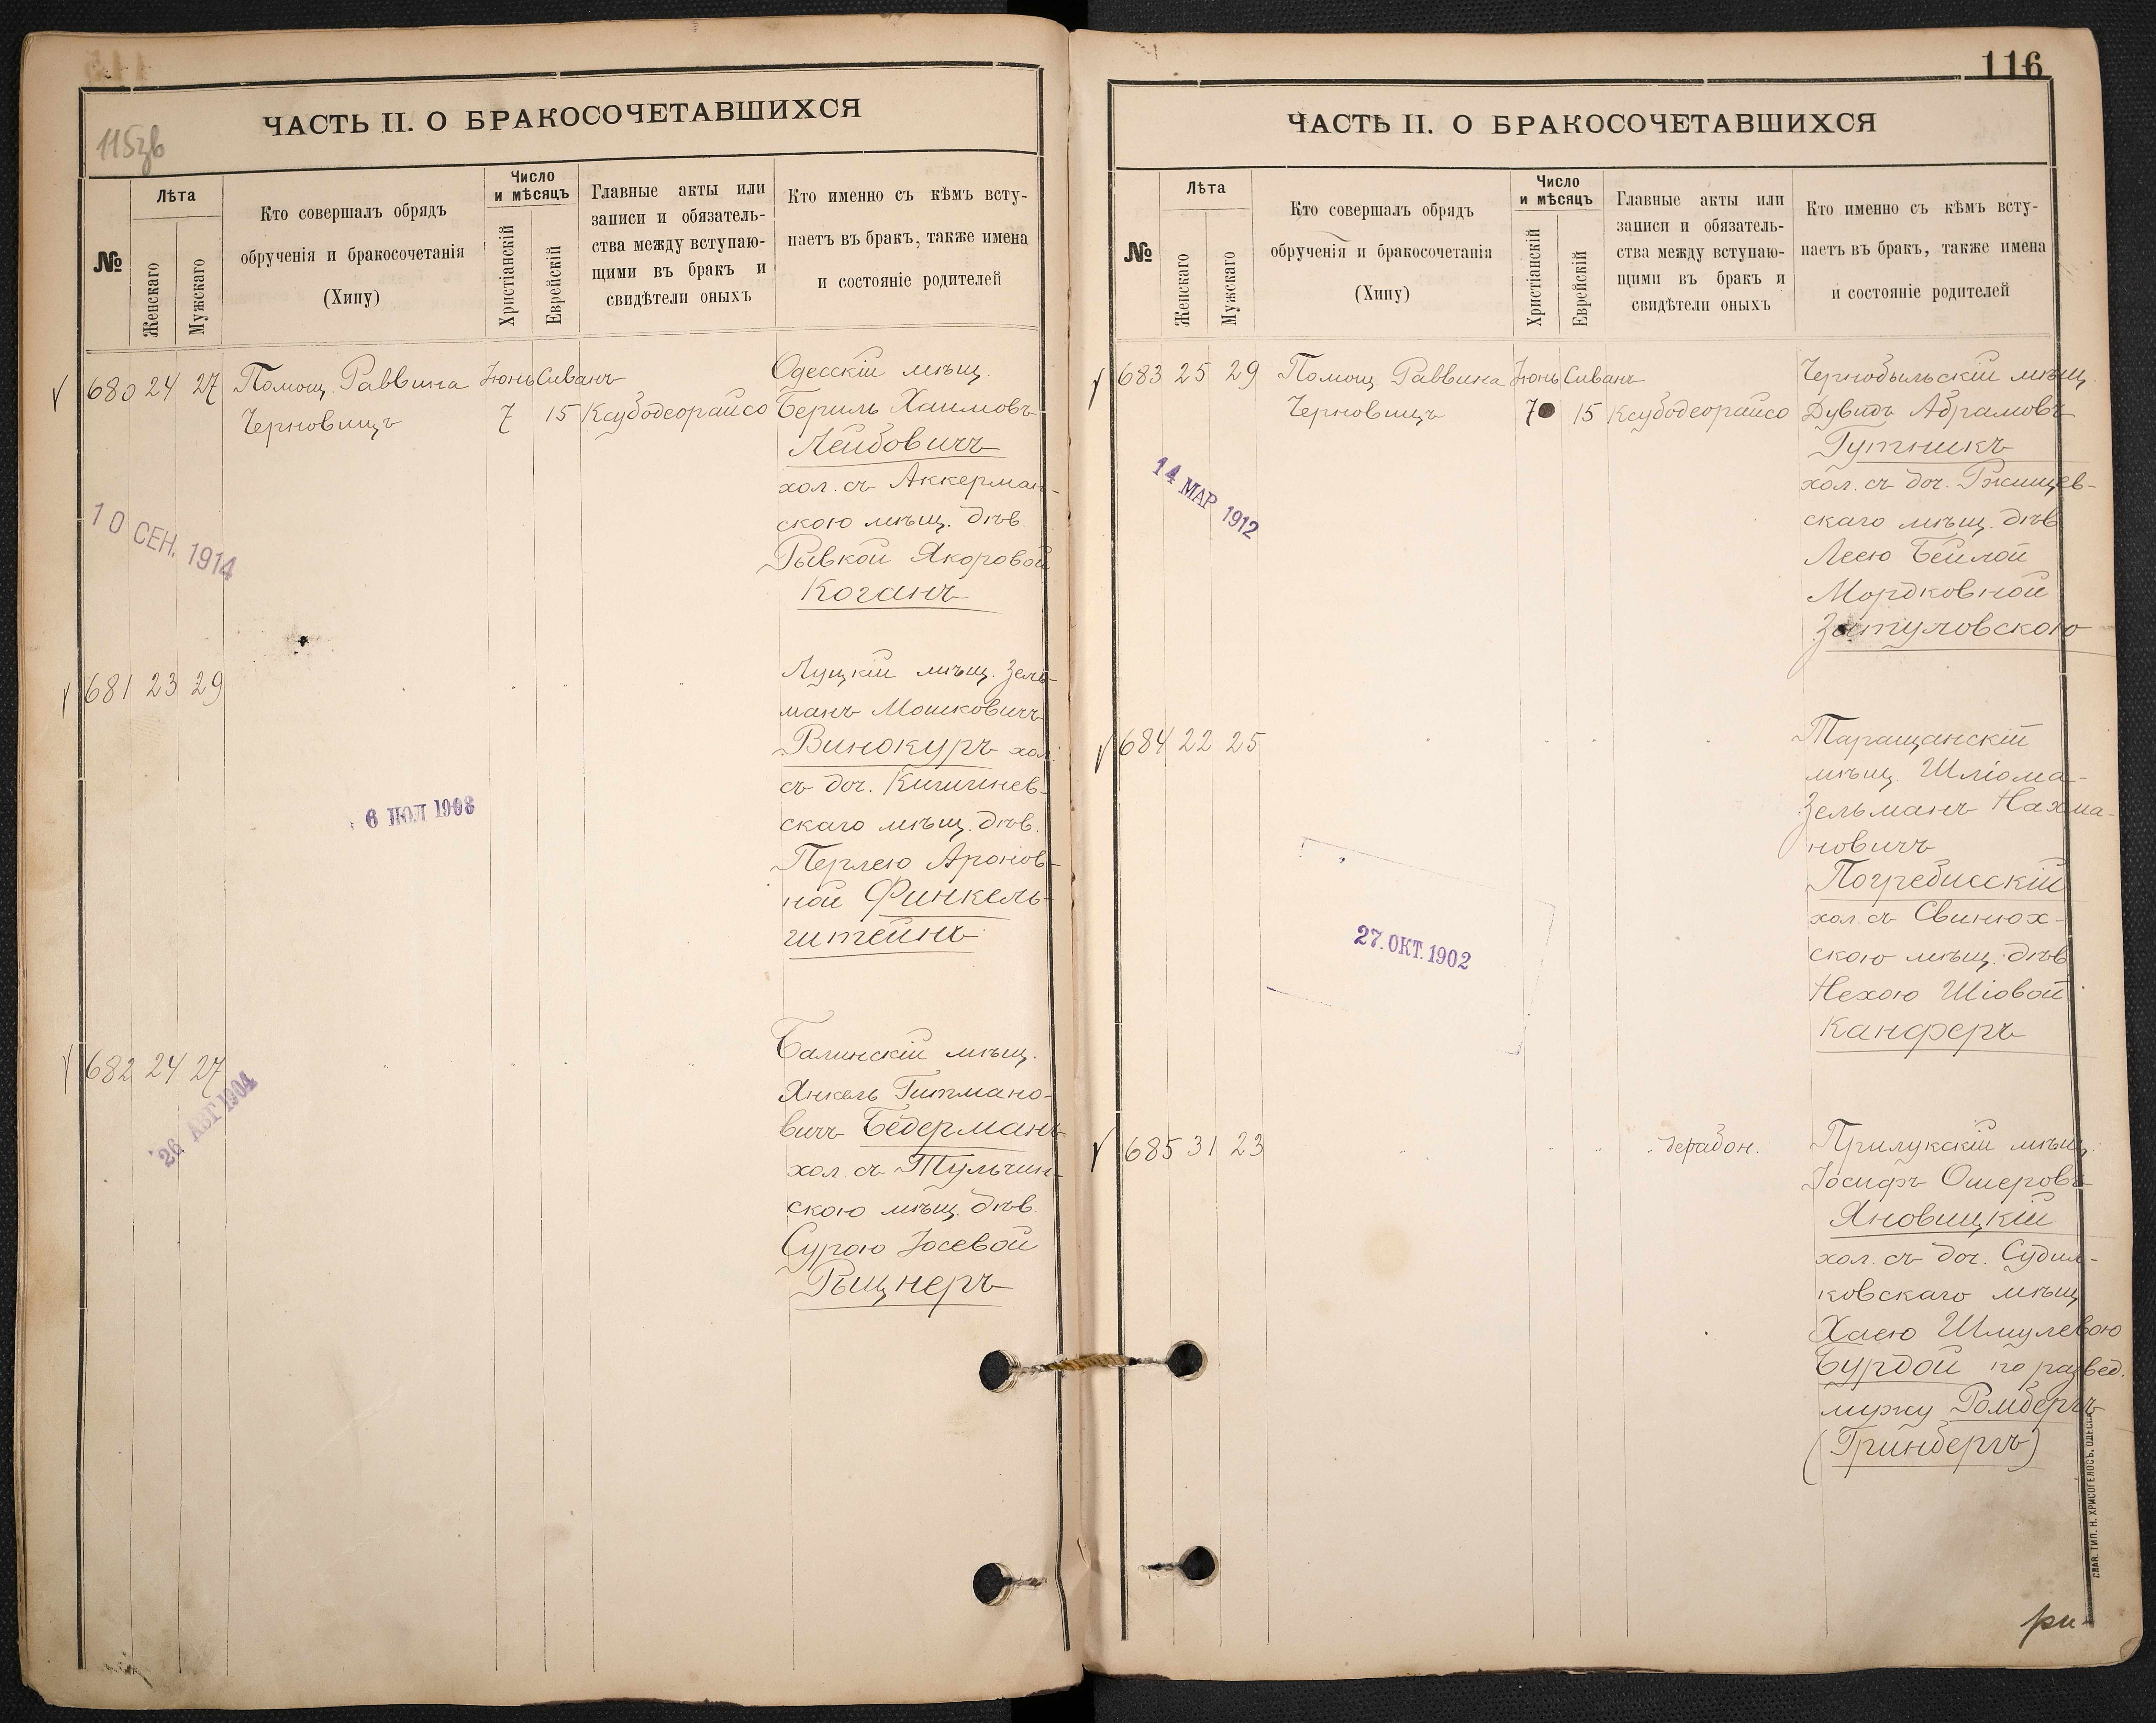 115зв
ЧАСТЬ II. О БРАКОСОЧЕТАВШИХСЯ
№
Лѣта
Женскаго
Мужскаго
Кто совершалъ обрядъ
обрученія и бракосочетанія
(Хипу)
Число
и мѣсяцъ
Христіанскій
Еврейскій
Главные акты или
записи и обязатель-
ства между вступаю-
щими въ бракъ и
свидѣтели оныхъ
Кто именно съ кѣмъ всту-
паетъ въ бракъ, также имена
и состояніе родителей
680 24 27 Помощ. Раввина Іюнь Сиванъ
Черновицъ 7 15 Ксубодеорайсо
Одесскій мѣщ.
Бериль Хаимовъ
Лейбовичъ
хол. съ Аккерман-
скою мѣщ. дѣв.
Рывкой Якоровой
Коганъ
10 СЕН. 1914
681 23 29
Луцкій мѣщ. Зель-
манъ Мошковичъ
Винокуръ хол.
съ доч. Кишинев-
скаго мѣщ. дѣв.
Перлею Аронов-
ной Финкель-
штейнъ
6 ИЮЛ 1908
682 24 27
Балинскій мѣщ.
Янкель Гитмано-
вичъ Бедерманъ
хол. съ Тульчин-
скою мѣщ. дѣв.
Сурою Іосевой
Рыцнеръ
26 АВГ 1904
116
ЧАСТЬ II. О БРАКОСОЧЕТАВШИХСЯ
№
Лѣта
Женскаго
Мужскаго
Кто совершалъ обрядъ
обрученія и бракосочетанія
(Хипу)
Число
и мѣсяцъ
Христіанскій
Еврейскій
Главные акты или
записи и обязатель-
ства между вступаю-
щими въ бракъ и
свидѣтели оныхъ
Кто именно съ кѣмъ всту-
паетъ въ бракъ, также имена
и состояніе родителей
683 25 29 Помощ. Раввина Іюнь Сиванъ
Черновицъ 7 15 Ксубодеорайсо
Чернобыльскій мѣщ.
Дувидъ Абрамовъ
Гутникъ
хол. съ доч. Ржищев-
скаго мѣщ. дѣв
Леею Бейлой
Мордковной
Затуловскою
14 МАР 1912
684 22 25
Таращанскій
мѣщ. Шліома-
Зельманъ Нахма-
новичъ
Погребисскій
хол. съ Свинюх-
скою мѣщ. дѣв
Нехою Шіовой
Канферъ
27. ОКТ. 1902
685 31 23
дерабон.
Прилукскій мѣщ.
Іосифъ Ошеровъ
Яновицкій
хол. съ доч. Судил-
ковскаго мѣщ
Хаею Шмулевою
Бурдой по развед.
мужу Ромбергъ
(Гринбергъ)
СЛАВ. ТИП. Н. ХРИСОГЕЛОСЪ, ОДЕССА